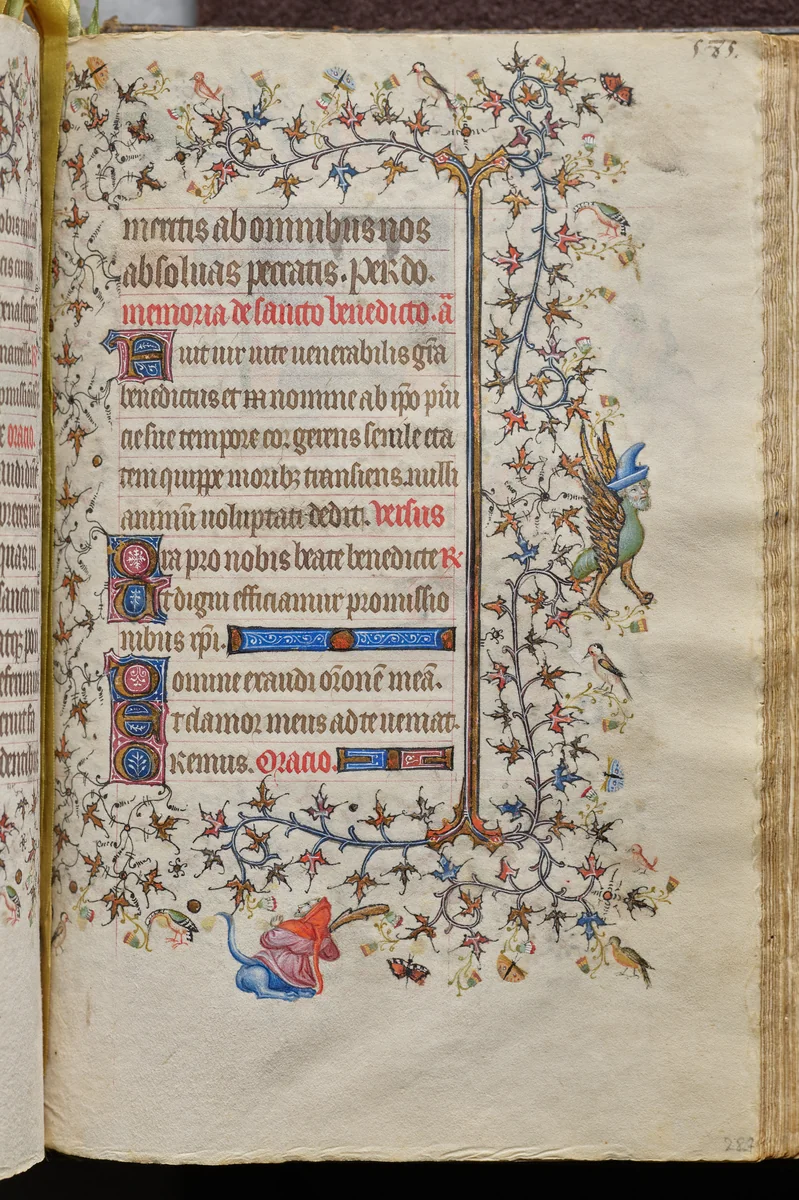 575.
meritis ab omnibus nos
absoluas peccatis. Per do.
memoria de sancto benedicto. ā
Fuit uir uite uenerabilis grā
benedictus et in nomine ab ipo pūi
cie sue tempore cor gerens senile eta
tem quippe moribꝫ transiens. nulli
animū uoluptati dedit. versus
Ora pro nobis beate benedicte R
Ut digni efficiamur promissio
nibus xpi.
Domine exaudi orōnē meā.
Et clamor meus ad te ueniat.
Oremus. Oracio.
287